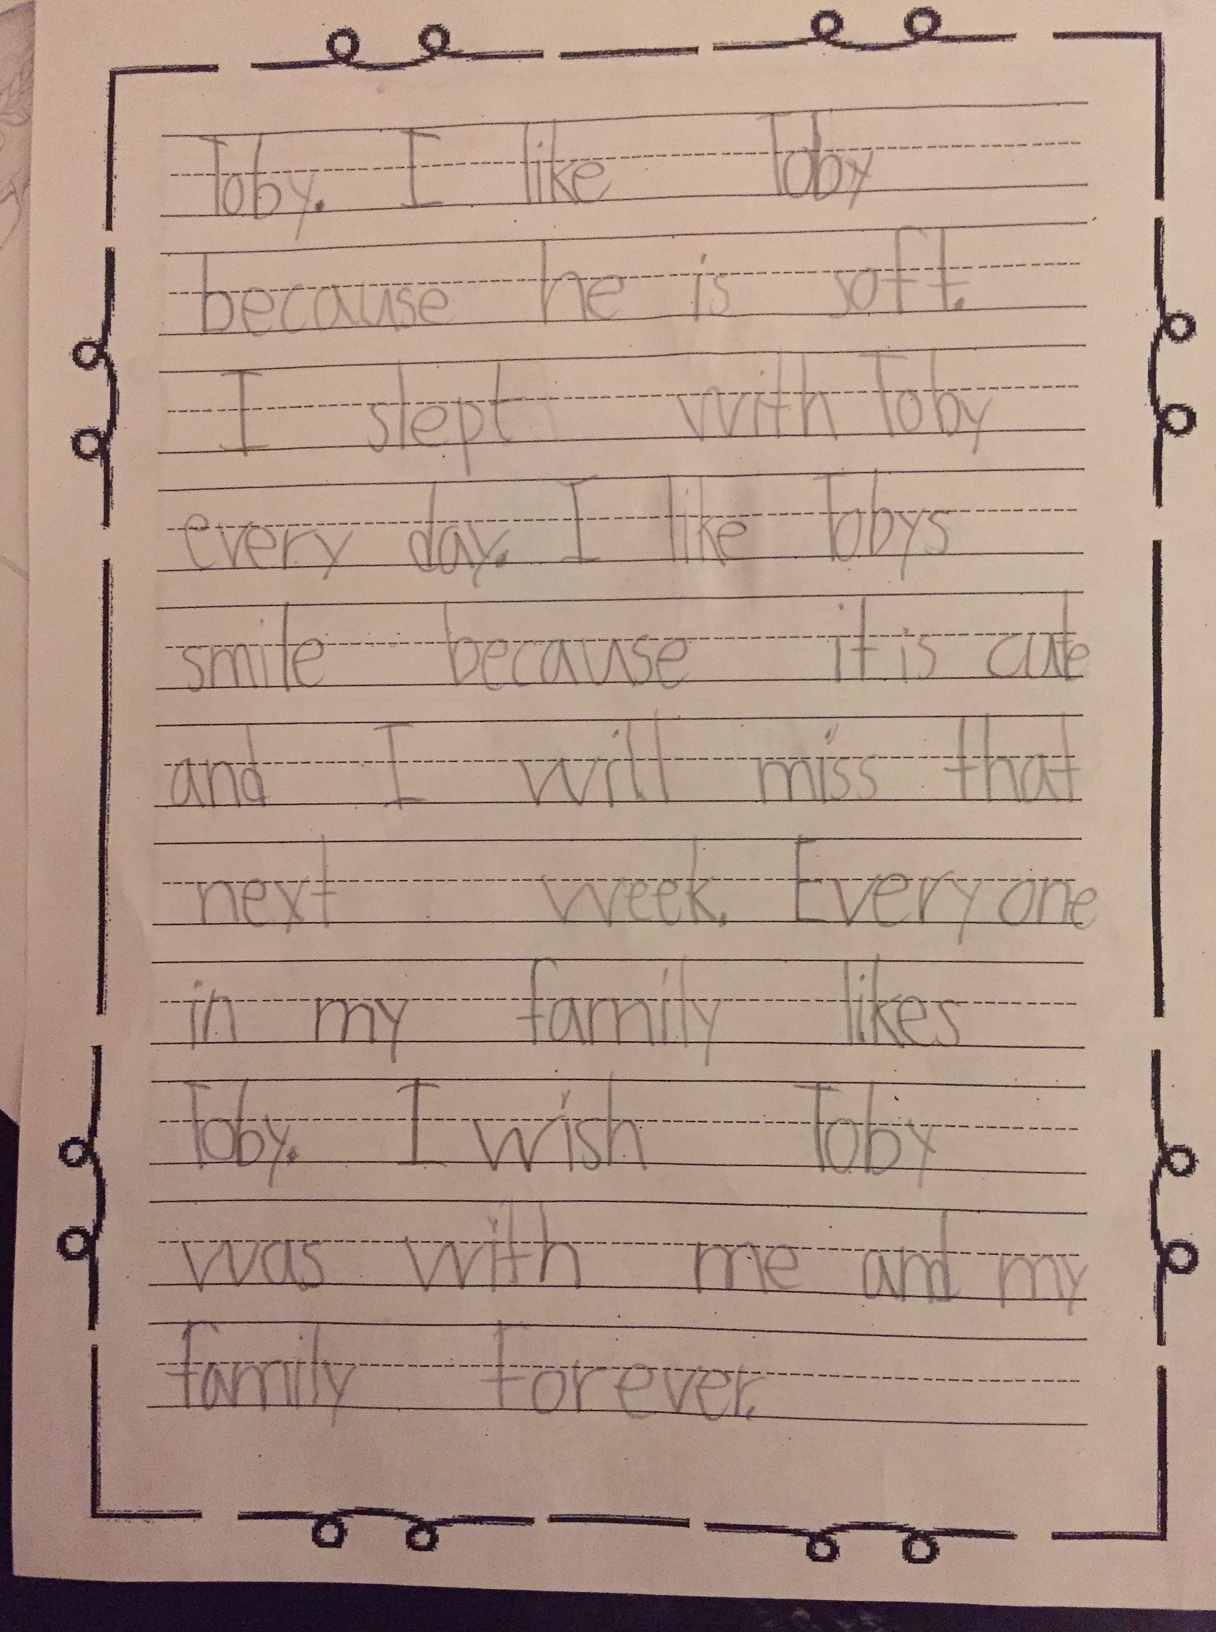 Toby. I like Toby
because he is soft.
I slept with Toby
every day. I like Tobys
smile because it is cute
and I will miss that
next week. Everyone
in my family likes
Toby. I wish Toby
was with me and my
family forever.